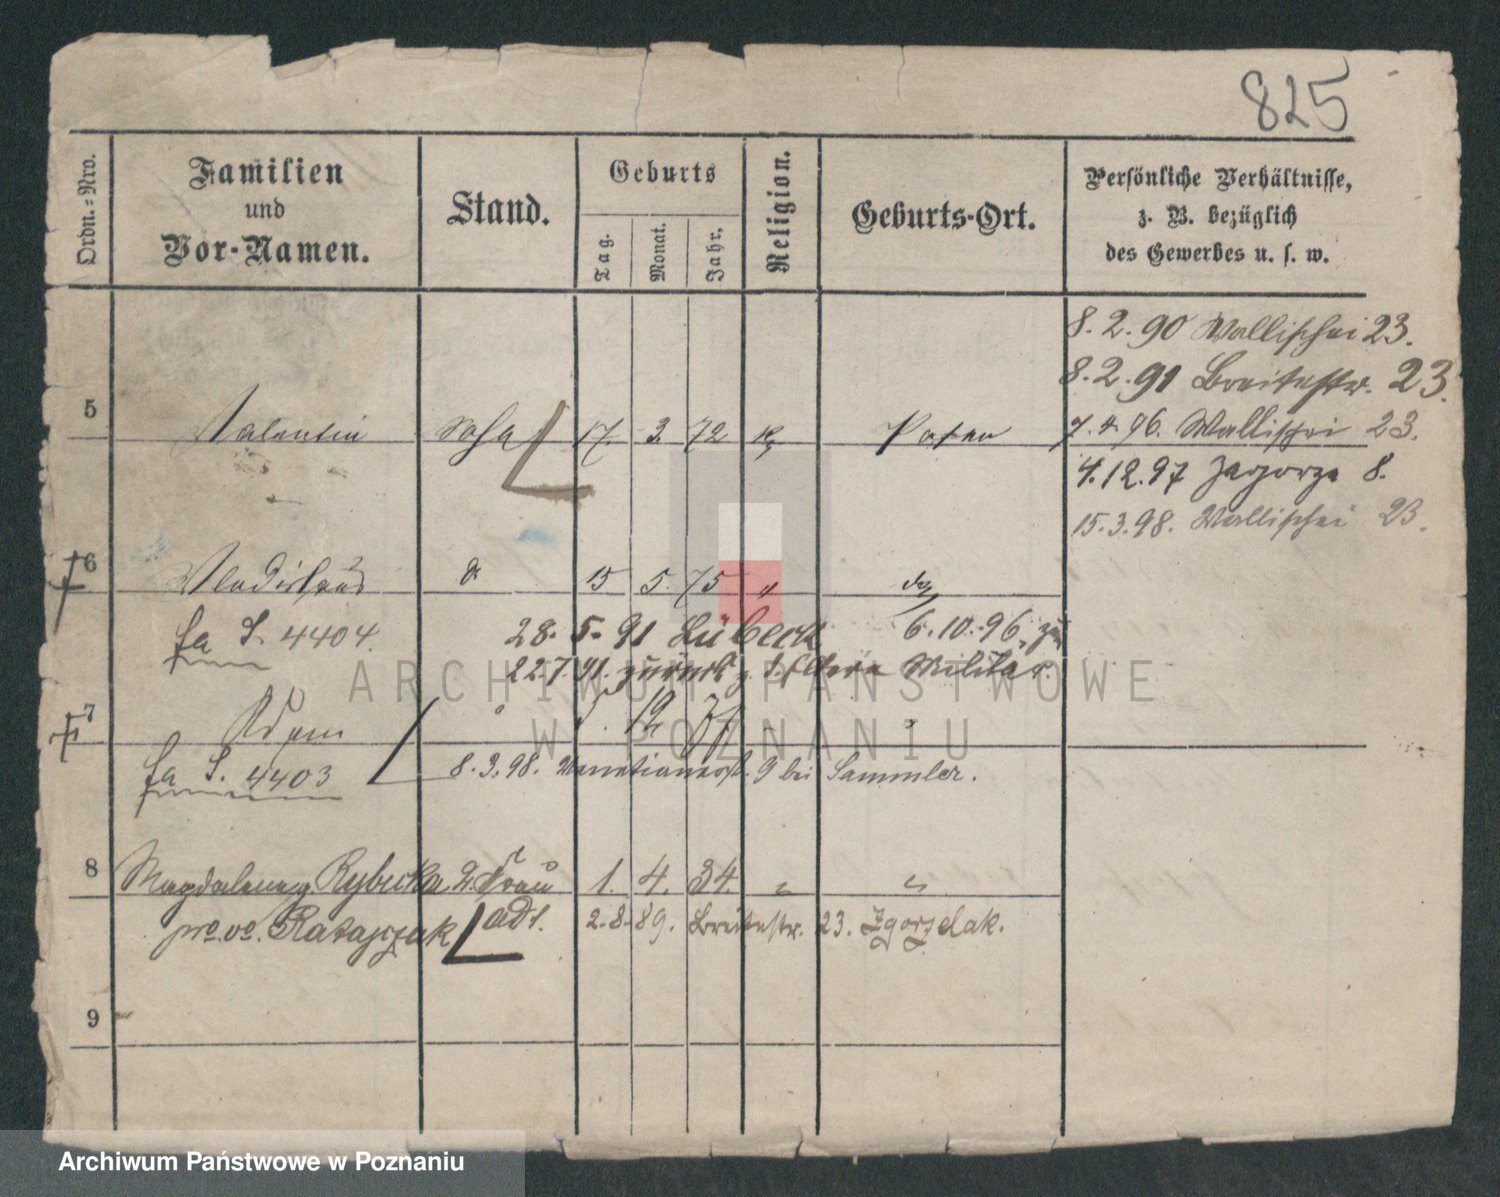 825
Ordn.-Nro.
Familien
und
Vor-Namen.
Stand.
Geburts
Tag.
Monat.
Jahr.
Religion.
Geburts-Ort.
Persönliche Verhältnisse,
z. B. bezüglich
des Gewerbes u. s. w.
8.2.90 Wallischei 23.
8.2.91 Breitestr. 23.
5 Valentin 17. 3. 72 Posen 7.4.96. Wallischei 23.
4.12.97 Zagorze 8.
15.3.98. Wallischei 23.
6 Vladislaus 15 5. 75 "
fa S. 4404. 28. 5. 91 Lübeck 6.10.96
22.7.91. zurück Militär.
7 Adam
fa S. 4403 8.3.98. Venetianerst. 9 bei Sammler.
8 Magdalena g. Rybicka 2. Frau 1. 4. 34.
pro. vo. Ratajczak 2.8.89. Breitestr. 23. Zgorzelak.
9
ARCHIWUM PAŃSTWOWE
W POZNANIU
Archiwum Państwowe w Poznaniu